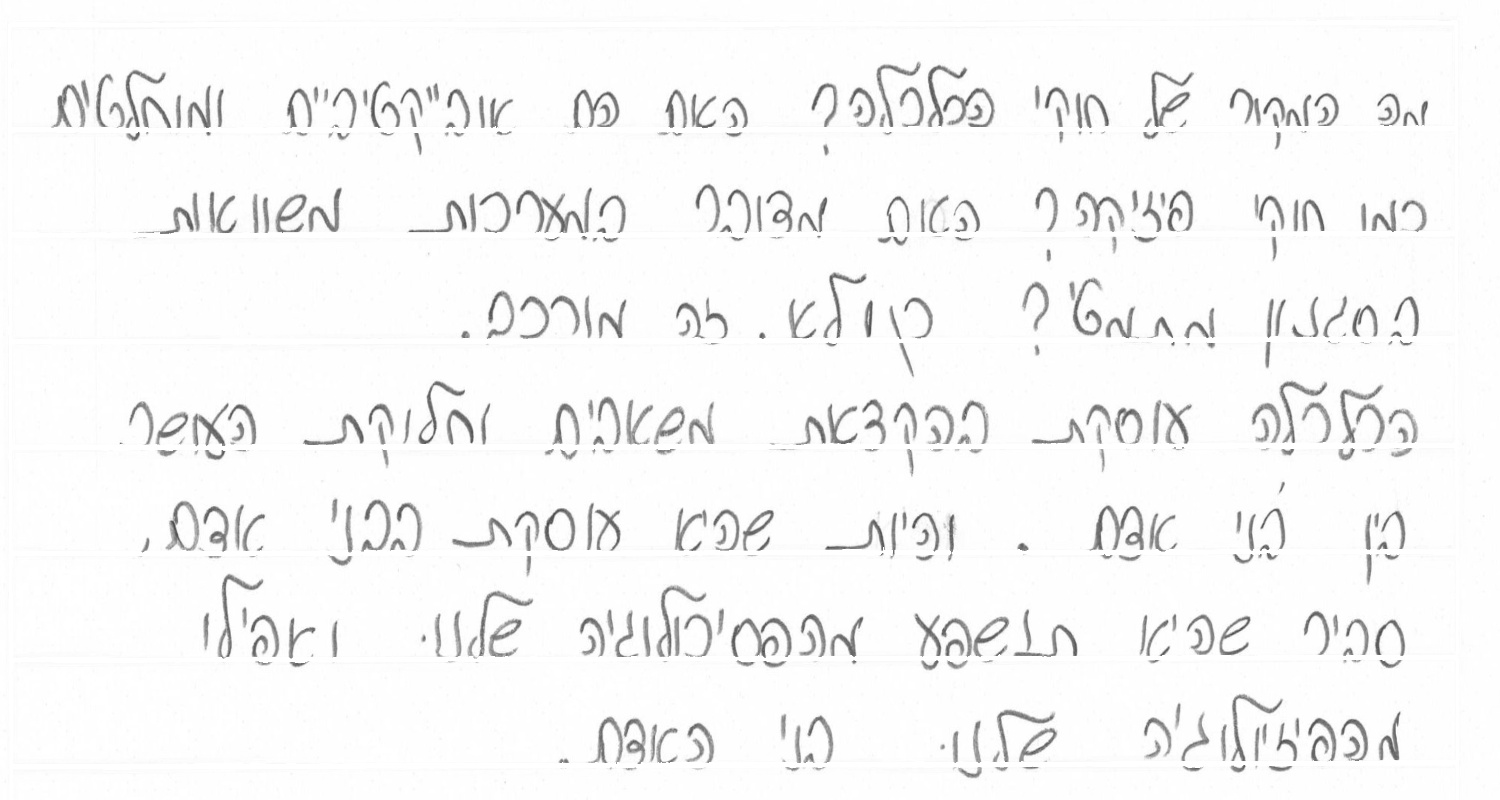 מה המקור של חוקי הכלכלה? האם הם אובייקטיביים ומוחלטים
כמו חוקי פיזיקה? האם מדובר במערכות משוואות
בסגנון מתמטי? כן ולא. זה מורכב.
הכלכלה עוסקת בהקצאת משאבים וחלוקת העושר
בין בני אדם. והיות שהיא עוסקת בבני אדם,
סביר שהיא תושפע מהפסיכולוגיה שלנו. ואפילו
מהפיזיולוגיה שלנו. בני האדם.